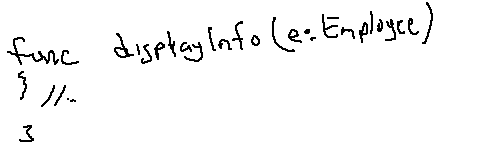 func displayInfo(e: Employee)
{ //..
}